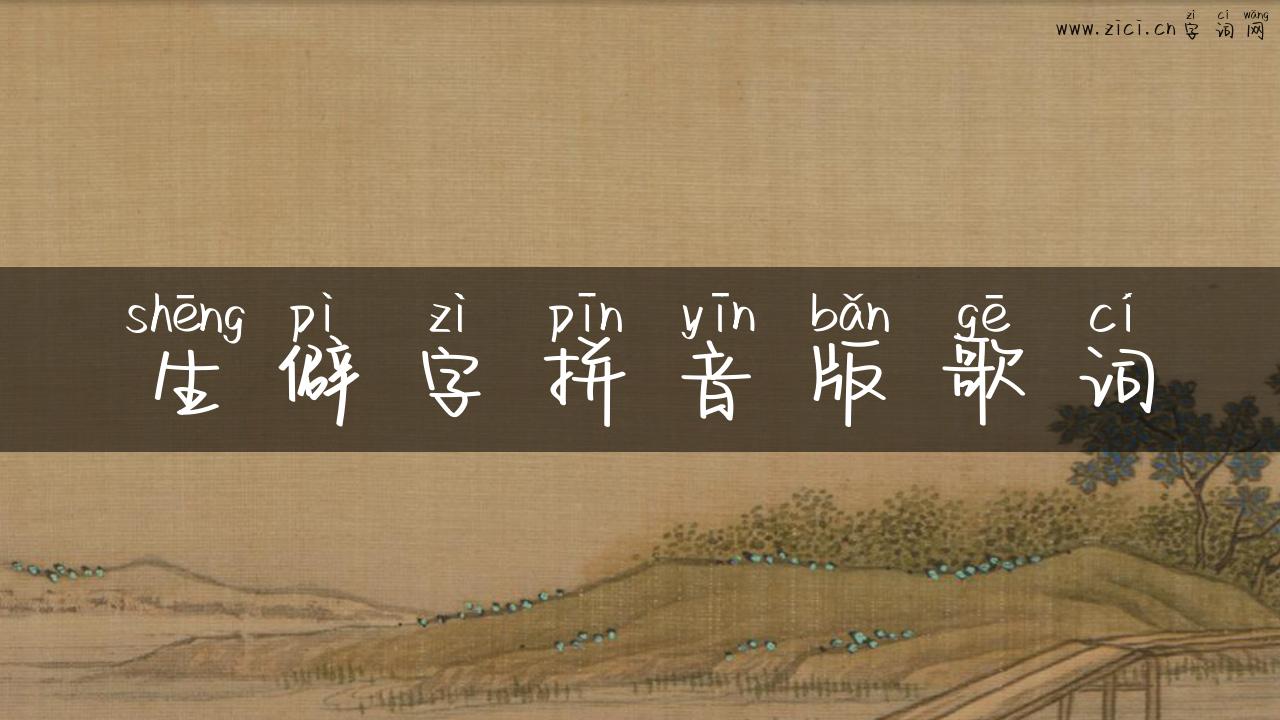 zì cí wǎng
www.zici.cn字词网
shēng pì zì pīn yīn bǎn gē cí
生僻字拼音版歌词